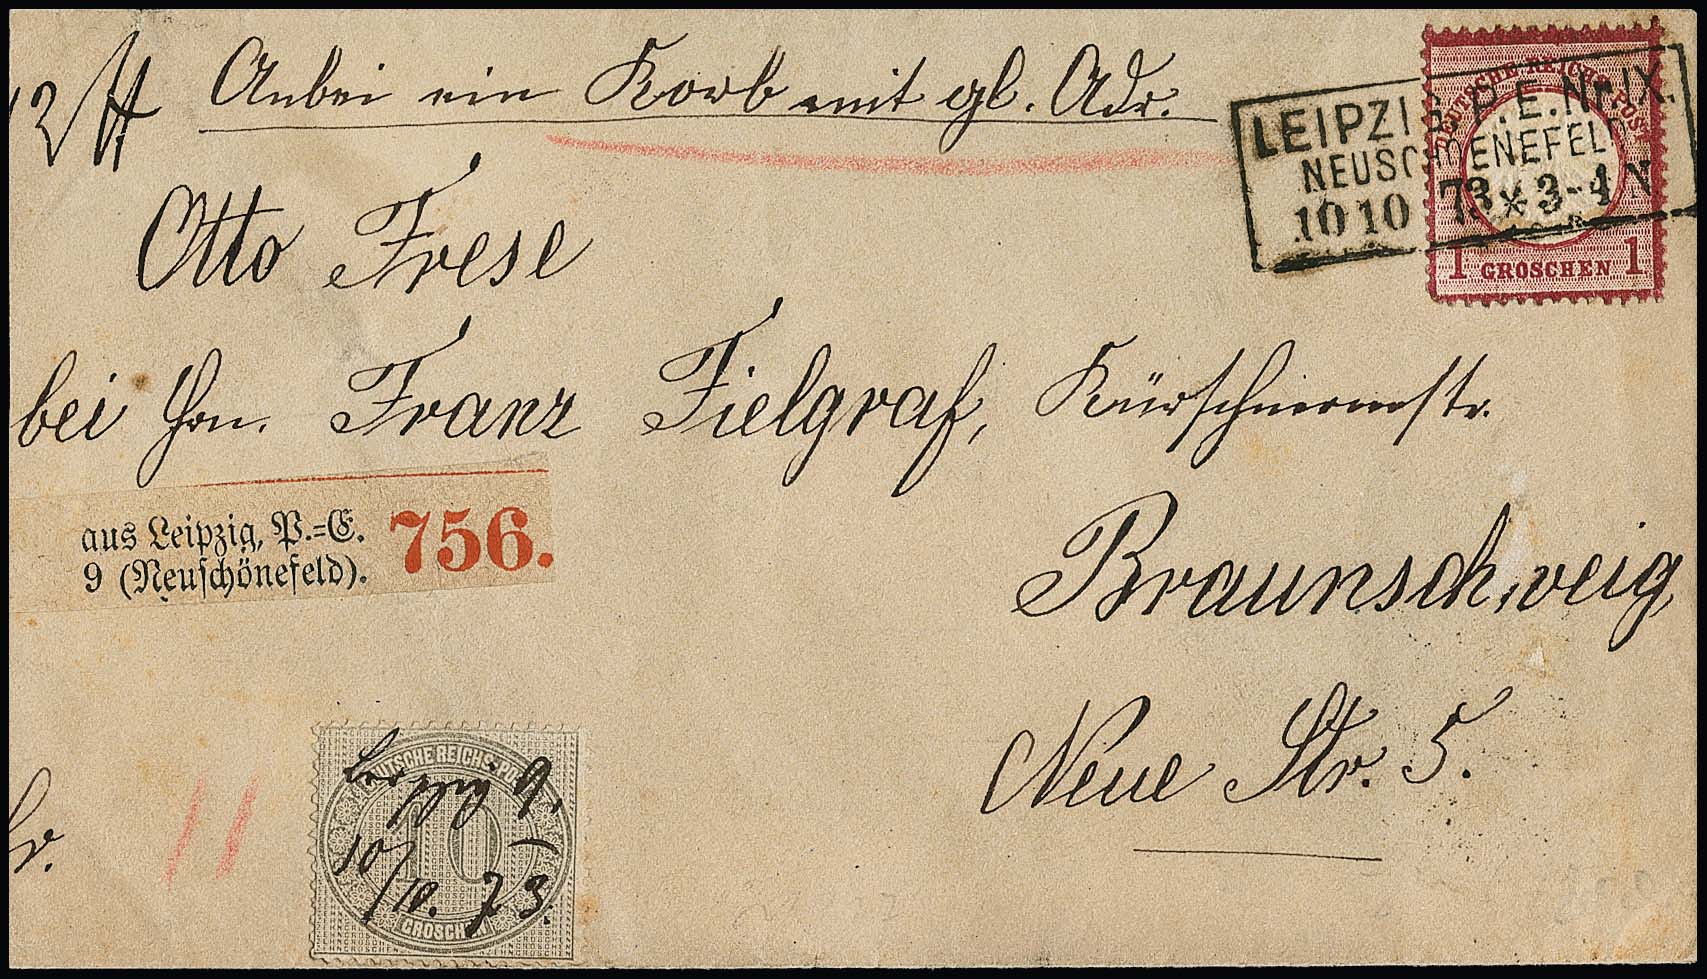 12 ℔ Anbei ein Korb mit gl. Adr.
DEUTSCHE REICHS-POST
1 GROSCHEN 1
LEIPZIG. P.E.Nr.IX.
NEUSCHOENEFELD
10 10 73 * 3-4 N
Otto Frese
bei Hrn. Franz Fielgraf, Kürschnermstr.
aus Leipzig, P.=E.
9 (Neuschönefeld).
756.
Braunschweig
Neue Str. 5.
DEUTSCHE REICHS-POST
10
GROSCHEN
Leipzig 9.
10/10. 73.
11